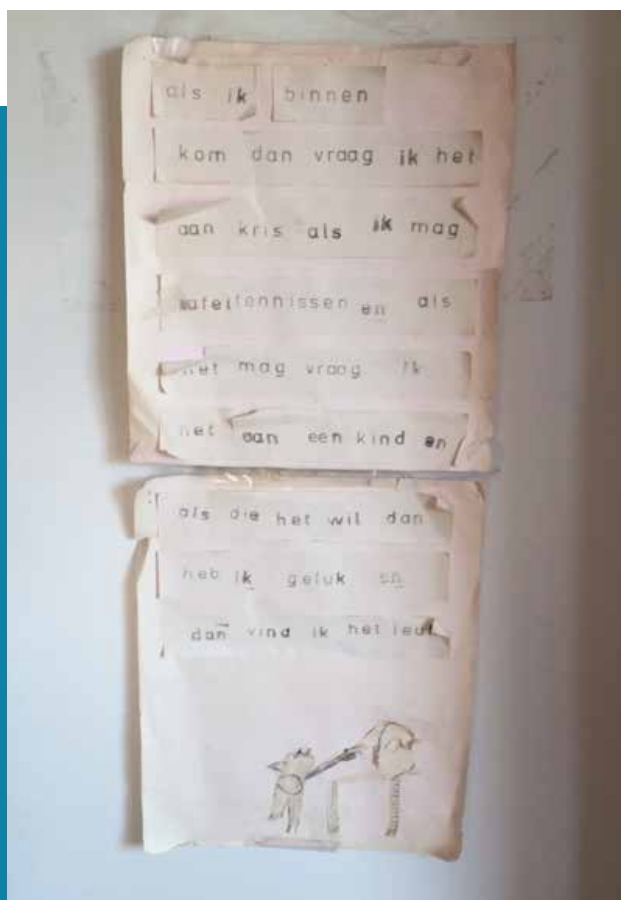 als ik binnen
kom dan vraag ik het
aan kris als ik mag
tafeltennissen en als
het mag vraag ik
het aan een kind en
als die het wil dan
heb ik geluk en
dan vind ik het leuk